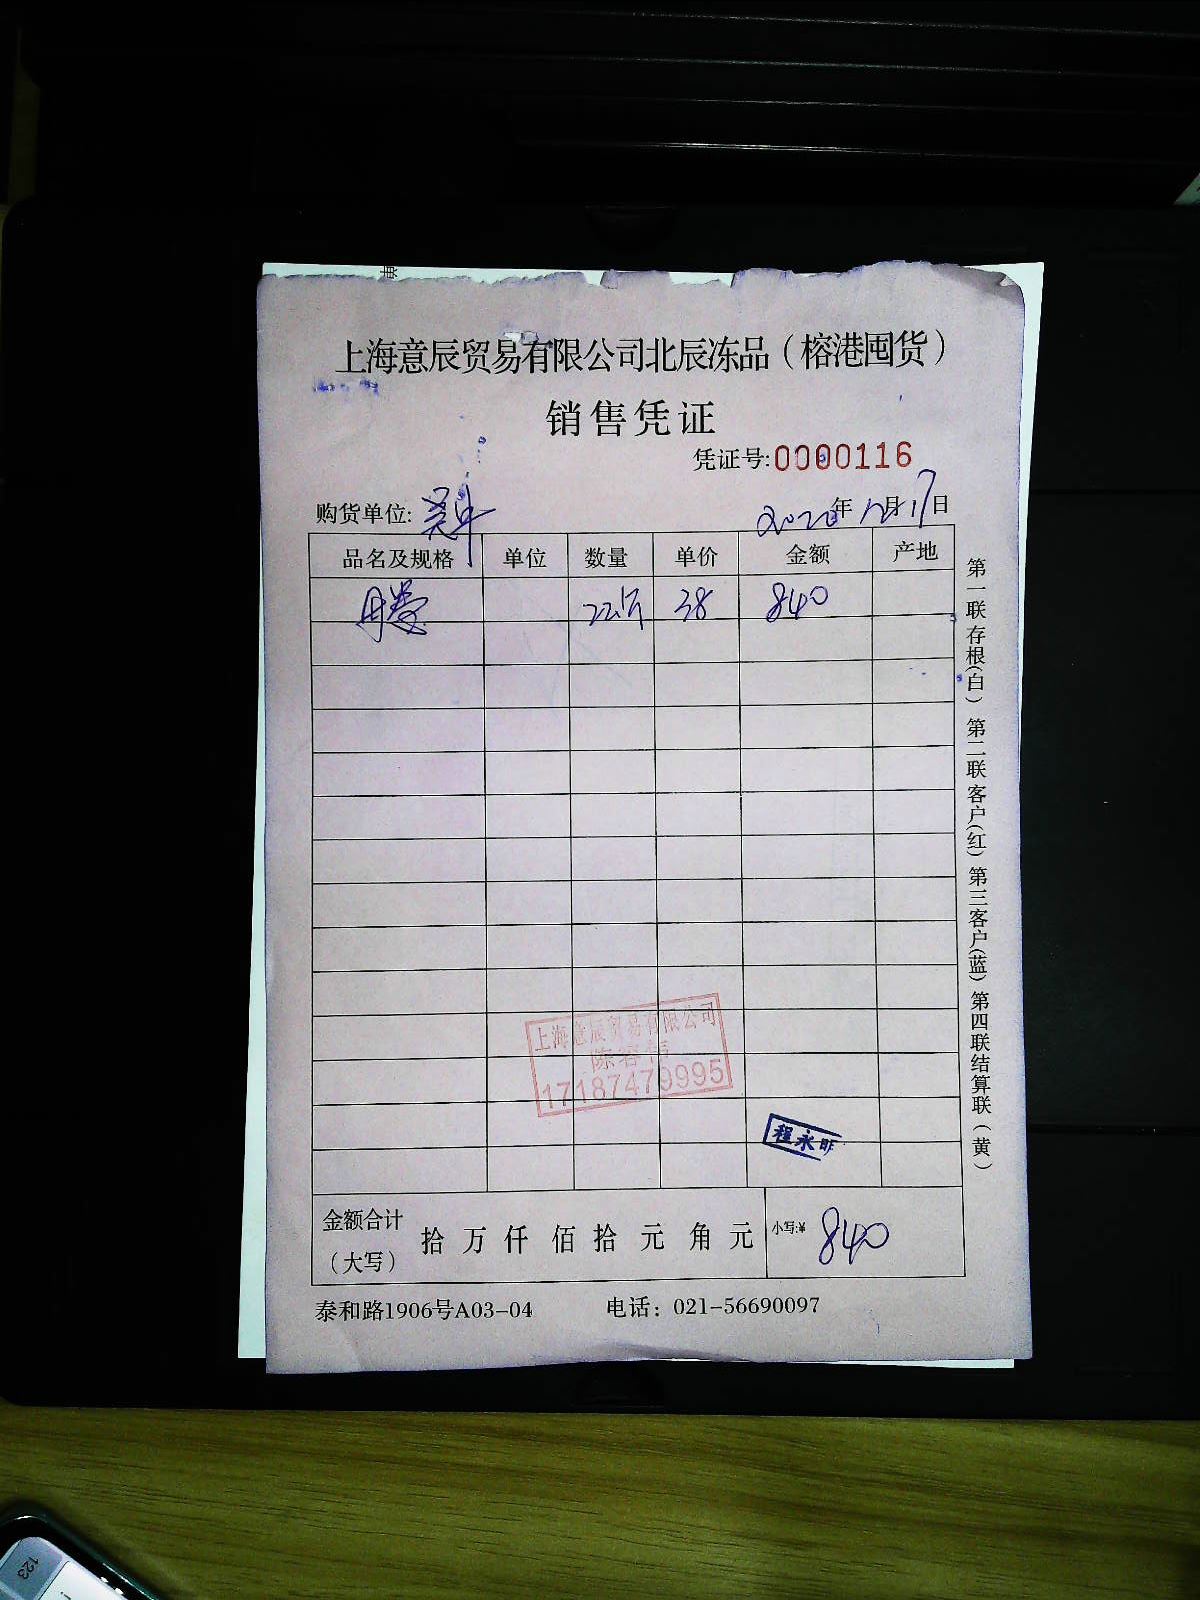 上海意辰贸易有限公司北辰冻品（榕港囤货）
销售凭证
凭证号:0000116
购货单位:
2020年12月17日
品名及规格 单位 数量 单价 金额 产地
22斤 38 840
第一联存根(白) 第二联客户(红) 第三客户(蓝) 第四联结算联(黄)
上海意辰贸易有限公司
17187479995
程永明
金额合计（大写） 拾 万 仟 佰 拾 元 角 元 小写:¥ 840
泰和路1906号A03-04 电话：021-56690097
123